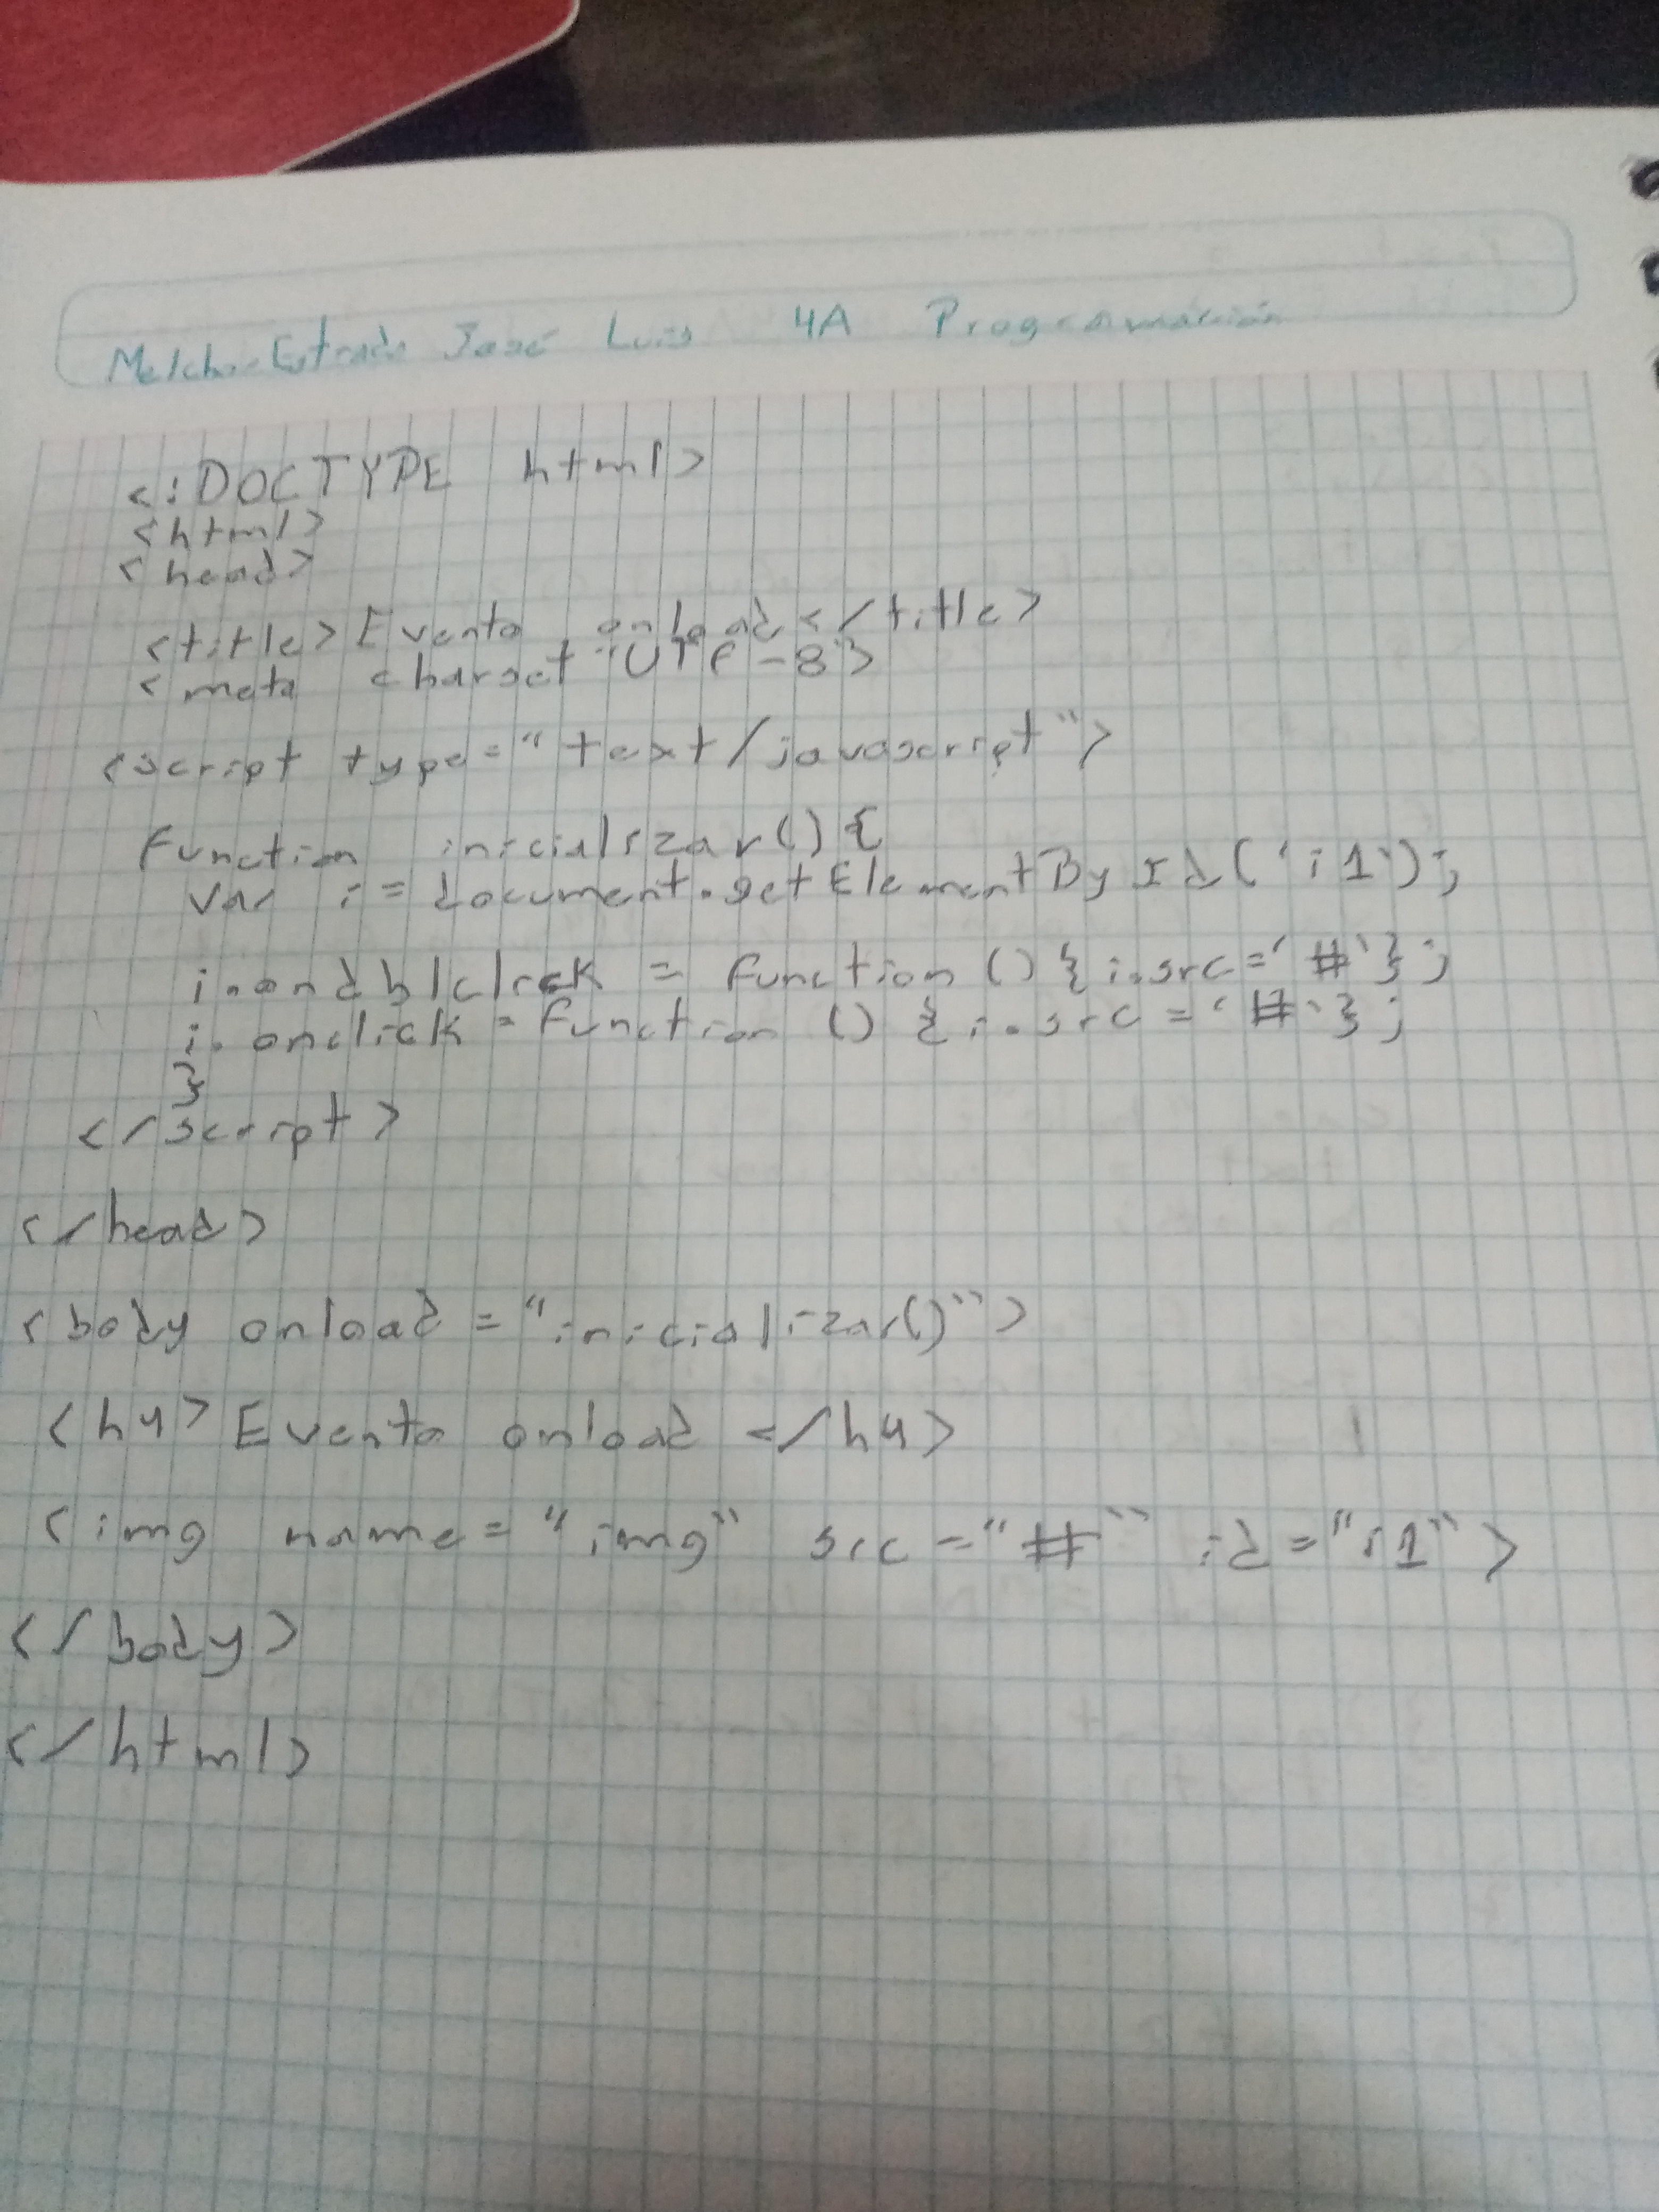 Melchor Estrada José Luis 4A Programación
<!DOCTYPE html>
<html>
<head>
<title>Evento onload</title>
<meta charset "UTF-8">
<script type="text/javascript">
function inicializar(){
var i = document.getElementById('i1');
i.ondblclick = function () {i.src='#'};
i.onclick = function () {i.src='#'};
}
</script>
</head>
<body onload="inicializar()">
<h4>Evento onload </h4>
<img name="img" src="#" id="i1">
</body>
</html>